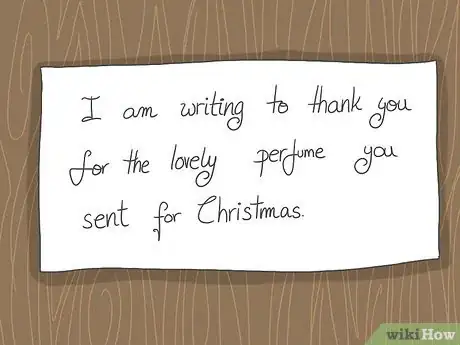 I am writing to thank you
for the lovely perfume you
sent for Christmas.
wikiHow